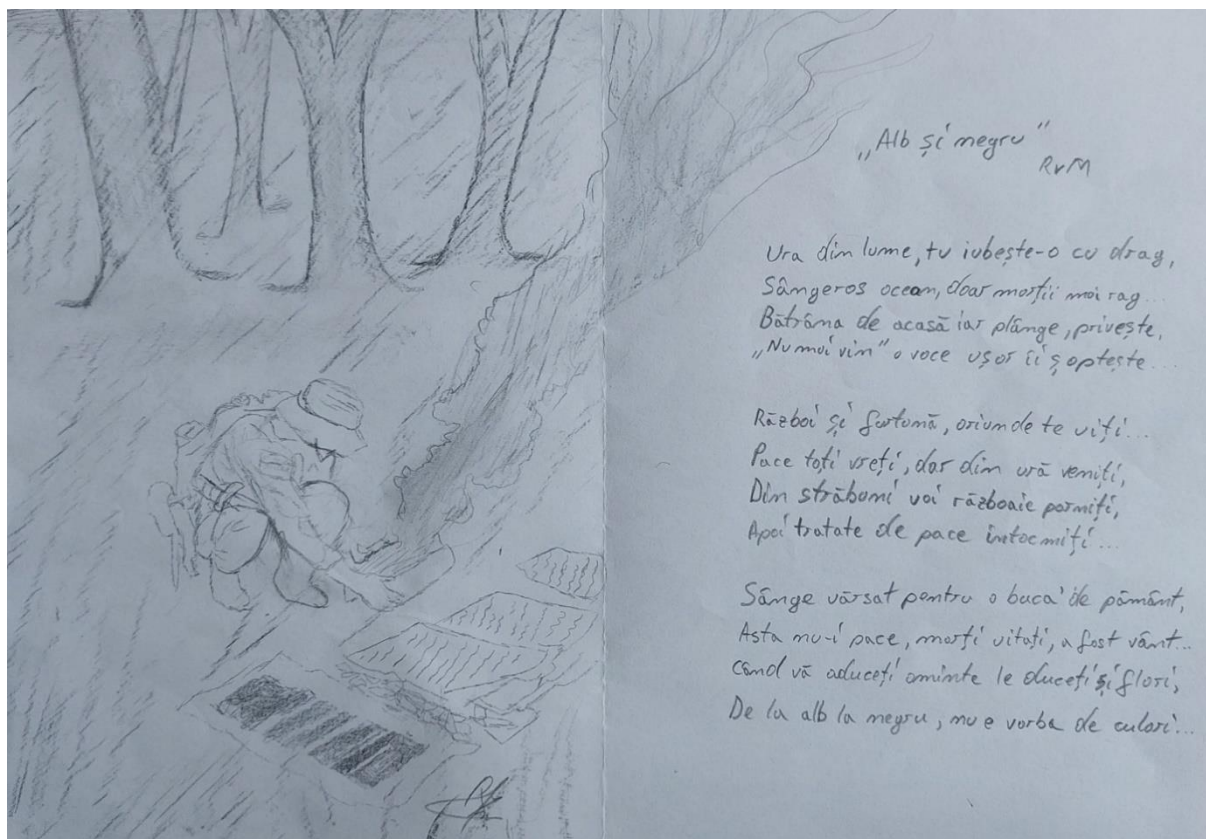 „Alb și negru”
RvM
Ura din lume, tu iubește-o cu drag,
Sângeros ocean, doar morții mai rag...
Bătrâna de acasă iar plânge, privește,
„Nu mai vin” o voce ușor îi șoptește...
Război și furtună, oriunde te uiți...
Pace toți vreți, dar din ură veniți,
Din străbuni voi războaie porniți,
Apoi tratate de pace întocmiți...
Sânge vărsat pentru o buca' de pământ,
Asta nu-i pace, morți uitați, a fost vânt...
Când vă aduceți aminte le duceți și flori,
De la alb la negru, nu e vorba de culori...